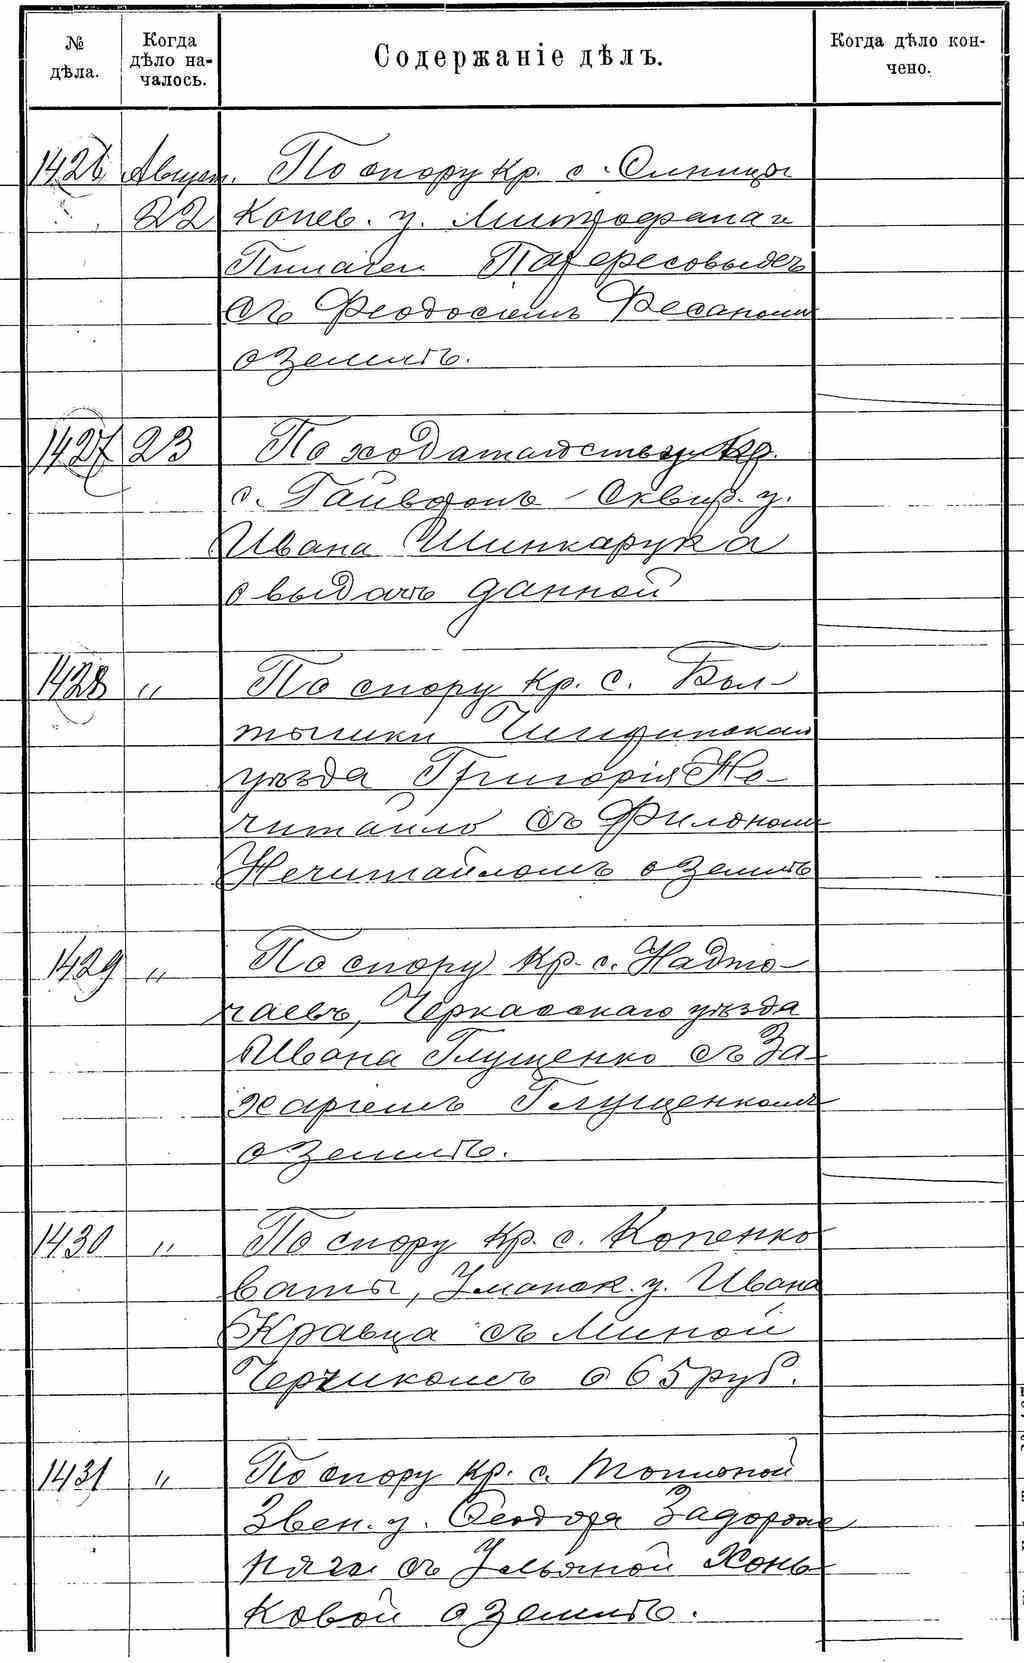 № дѣла.
Когда дѣло началось.
Содержаніе дѣлъ.
Когда дѣло кончено.
1426 Август. По спору кр. с.
22 Канев. у. Митрофана и
съ Феодосіемъ
о землѣ.
1427 23 По ходатайству кр.
с. Гайворонъ Сквир. у.
Ивана Шинкарука
о выдачѣ данной
1428 " По спору кр. с. Бол-
тышки Чигиринскаго
уѣзда Григорія Не-
читайло съ Филономъ
Нечитайломъ о землѣ
1429 " По спору кр. с. Надто-
чаевъ, Черкасскаго уѣзда
Ивана Глущенко съ За-
харіемъ Глущенкомъ
о землѣ.
1430 " По спору кр. с. Копенко
ваты, Уманск. у. Ивана
Кравца съ Миной
о 65 руб.
1431 " По спору кр. с. Топильной
Звен. у. Ѳеодора Задорож
няго съ Ульяной Хонь-
ковой о землѣ.